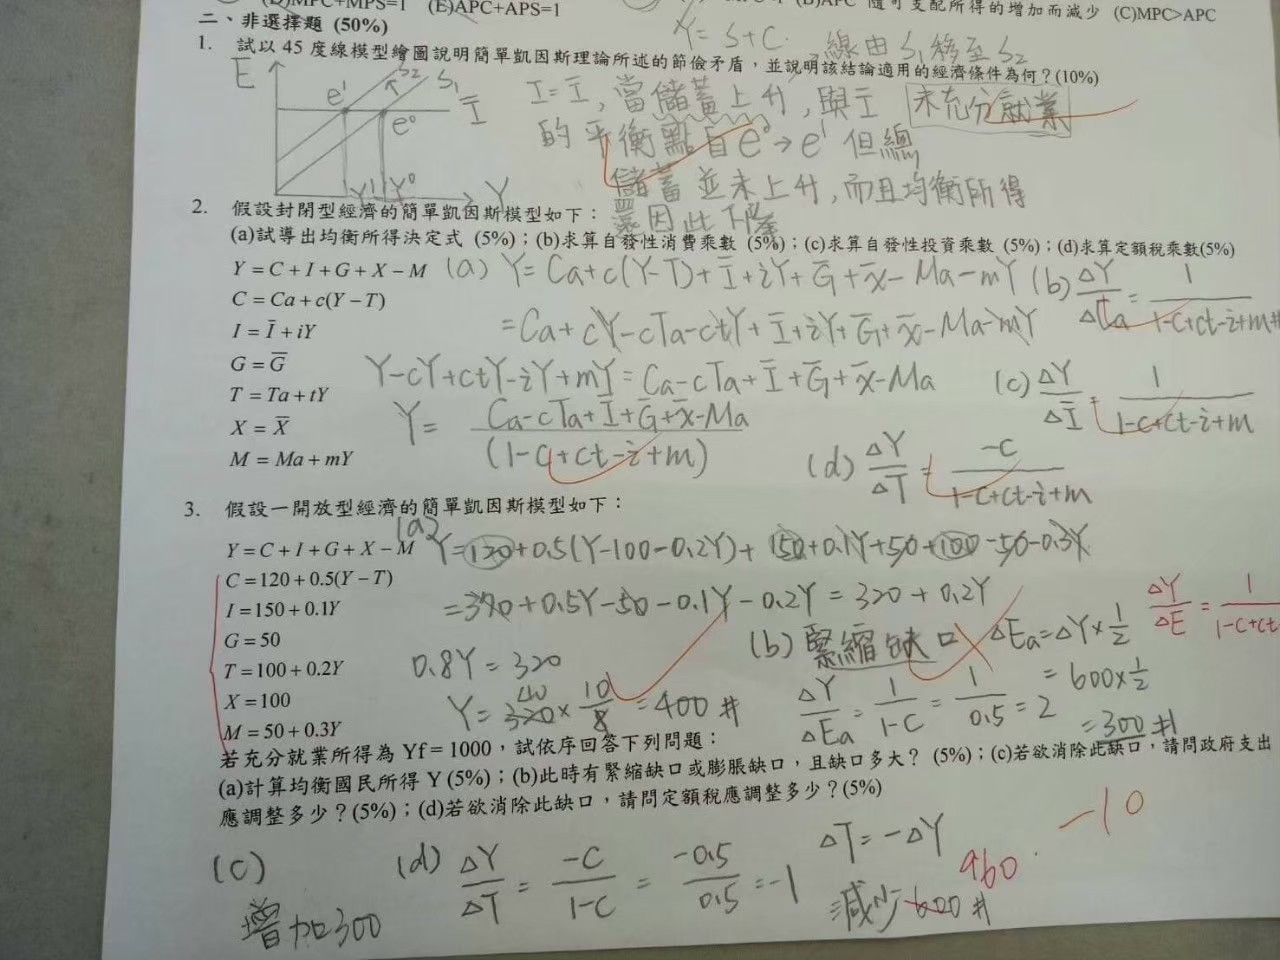 MPC+MPS=1 (E)APC+APS=1
隨可支配所得的增加而減少 (C)MPC>APC
二、非選擇題 (50%)
Y=S+C. 線由S₁移至S₂
1. 試以 45 度線模型繪圖說明簡單凱因斯理論所述的節儉矛盾，並說明該結論適用的經濟條件為何？(10%)
E S₂ S₁ Ī e' e⁰ Y' Y⁰ Y
I=Ī, 當儲蓄上升, 與I 未充分就業
的平衡點自e⁰→e' 但總
儲蓄並未上升,而且均衡所得
還因此下降
2. 假設封閉型經濟的簡單凱因斯模型如下：
(a)試導出均衡所得決定式 (5%)；(b)求算自發性消費乘數 (5%)；(c)求算自發性投資乘數 (5%)；(d)求算定額稅乘數(5%)
Y = C + I + G + X − M
C = Ca + c(Y − T)
I = Ī + iY
G = G̅
T = Ta + tY
X = X̅
M = Ma + mY
(a) Y= Ca+c(Y-T)+Ī+iY+G̅+x̅-Ma-mY
=Ca+cY-cTa-ctY+Ī+iY+G̅+x̅-Ma-mY
Y-cY+ctY-iY+mY=Ca-cTa+Ī+G̅+x̅-Ma
Y= Ca-cTa+Ī+G̅+x̅-Ma
(1-c+ct-i+m)
(b) ΔY/ΔCa = 1/1-c+ct-i+m#
(c) ΔY/ΔĪ = 1/1-c+ct-i+m
(d) ΔY/ΔT = -c/1-c+ct-i+m
3. 假設一開放型經濟的簡單凱因斯模型如下：
Y = C + I + G + X − M
C = 120 + 0.5(Y − T)
I = 150 + 0.1Y
G = 50
T = 100 + 0.2Y
X = 100
M = 50 + 0.3Y
(a) Y=120+0.5(Y-100-0.2Y)+150+0.1Y+50+100-50-0.3Y
=370+0.5Y-50-0.1Y-0.2Y=320+0.2Y
0.8Y=320
Y=320×10/8=400#
40
(b) 緊縮缺口 ΔEa=ΔY×1/2
=600×1/2
=300#
ΔY/ΔEa=1/1-c=1/0.5=2
ΔY/ΔE=1/1-c+ct-
若充分就業所得為 Yf = 1000，試依序回答下列問題：
(a)計算均衡國民所得 Y (5%)；(b)此時有緊縮缺口或膨脹缺口，且缺口多大？ (5%)；(c)若欲消除此缺口，請問政府支出
應調整多少？(5%)；(d)若欲消除此缺口，請問定額稅應調整多少？(5%)
(c)
增加300
(d) ΔY/ΔT=-c/1-c=-0.5/0.5=-1
ΔT=-ΔY
960
減少600#
-10